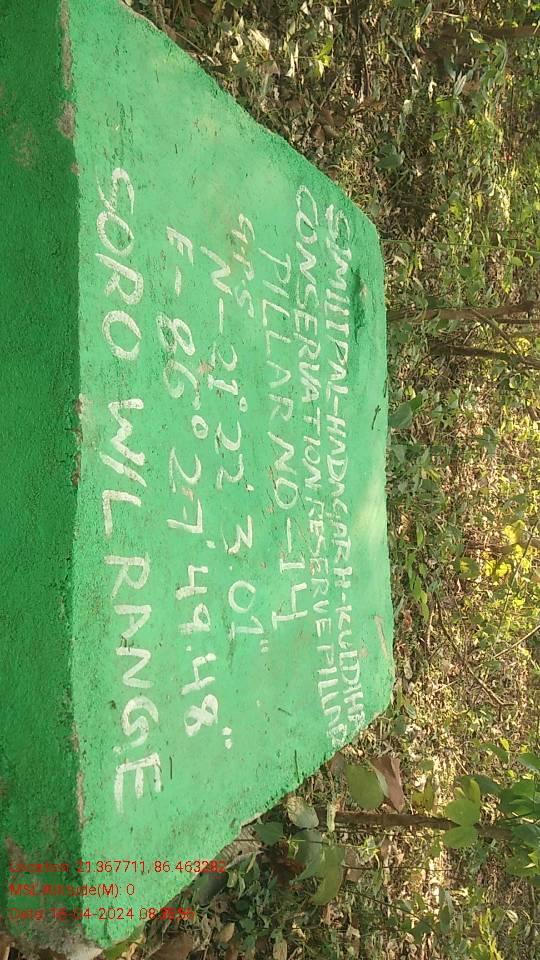 SIMILIPAL-HADAGARH-KULDIHA
CONSERVATION RESERVE PILLAR
PILLAR NO-14
GPS
N-21° 22' 3.01"
E-86° 27' 49.48"
SORO W/L RANGE
Location: 21.367711, 86.463282
MSL Altitude(M): 0
Date: 16-04-2024